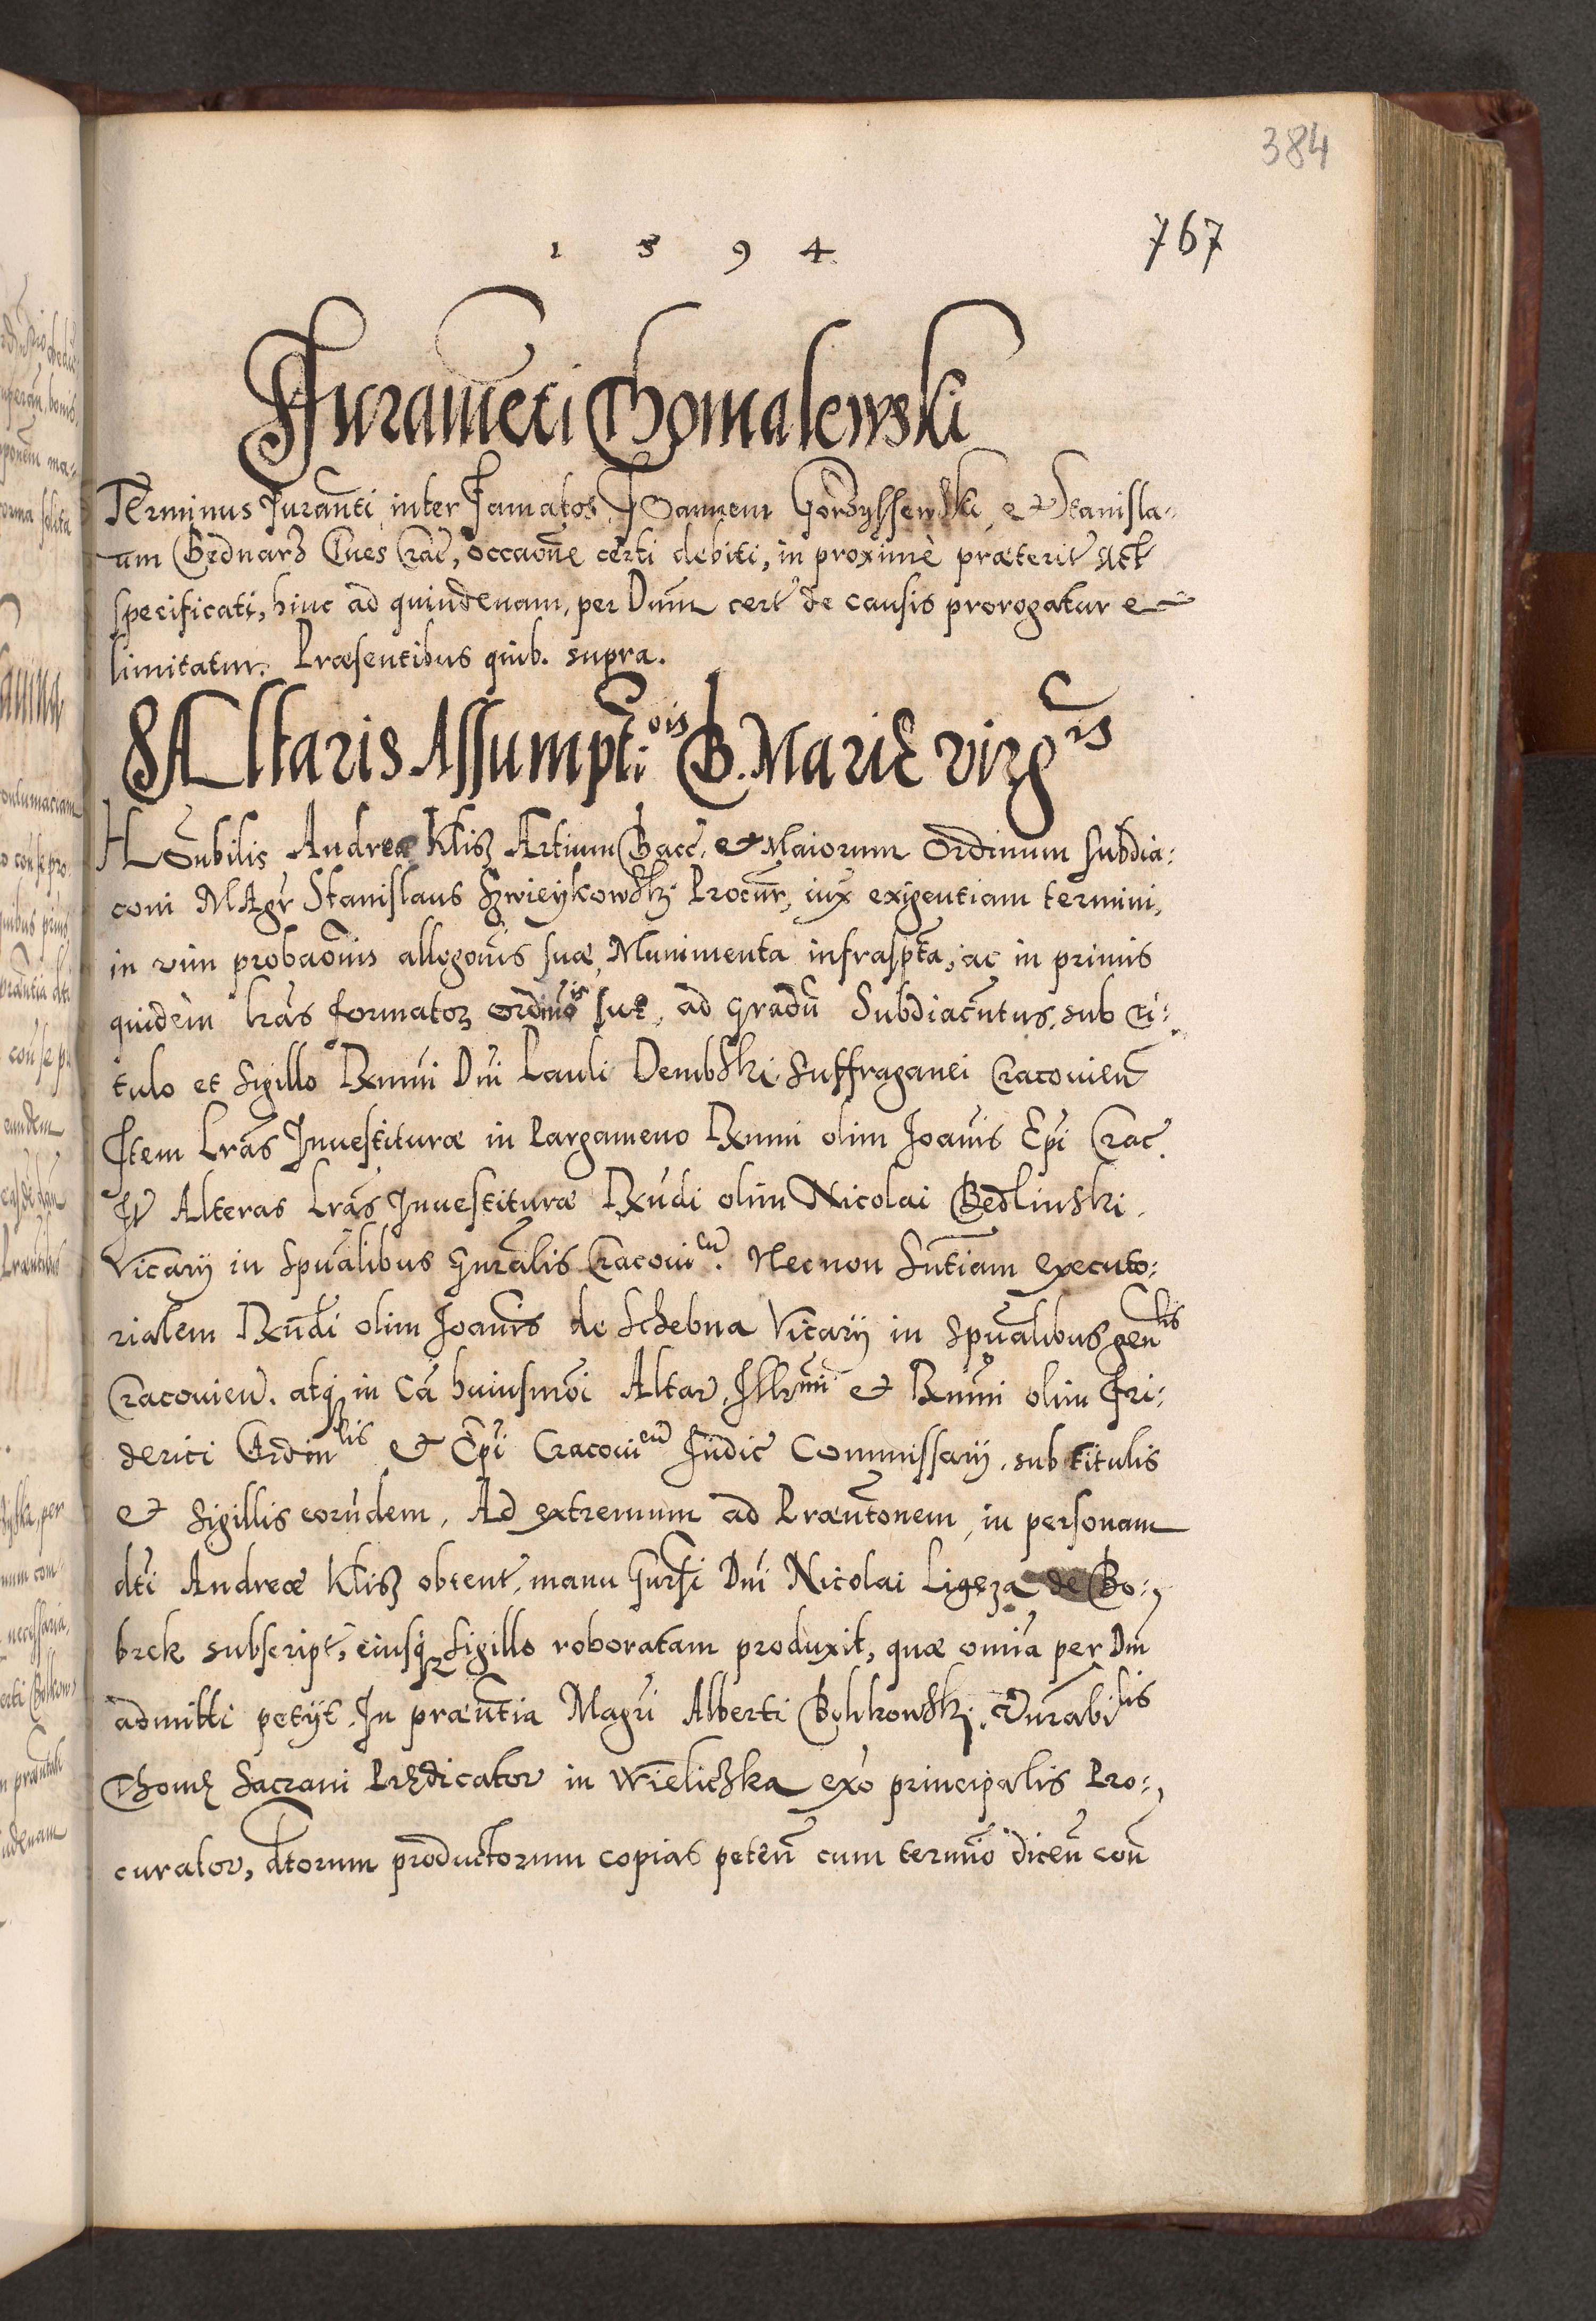 384
767
1 5 9 4
Iuramẽti Thomalewski
Terminus Iurañti inter Famatos, Ioannem Gorzyssewski, et Stanisla-
um Bednarz Ciues Crac, occaoñe certi debiti, in proximè præterit Act
specificati, hinc ad quindenam, per Dnm cert de causis prorogatur et
limitatur. Præsentibus quib. supra.
Altaris Assumpti:ois B. Marie virgis
Honbilis Andreæ Klisz Artium Bacc. et Maiorum Ordinum subdia:
coni MAgr Stanislaus Szwieykowsky Procur, iux exigentiam termini,
in vim probaõnis allegoñis suæ, Munimenta infraspta, ac in primis
quidem lras formatoʒ ordinis sui, ad gradũ Subdiacñtus, sub ti:
tulo et sigillo Rxmi Dni Pauli Dembski Suffraganei Cracouieñ
Item Lras Inuestituræ in Pargameno Rxmi olim Joanis Epi Crac.
It Alteras Lras Inuestituræ Rxndi olim Nicolai Bedlinski.
Vicarij in Spũalibus Gnralis Cracouien. Necnon Sntiam executo:
rialem Rxndi olim Joanis de Schebna Vicarij in Spũalibus genlis
Cracouien. atq in Cã huiusmõi Altar, Illrmi et Rxmi olim Fri:
derici Crdinlis et Epi Cracouien Iudic Commissarij, sub titulis
et Sigillis eorũdem, Ad extremum ad Præntõnem, in personam
dti Andreæ Klisz obtent, manu Gnrsi Dni Nicolai Ligęza de Bo:,
brek subscript, eiusq sigillo roboratam produxit, quæ omia per Dm
admitti petijt. In præntia Magri Alberti Bolikowsky, Vnrabilis
Thomę Sacrani Prędicator in Wieliczka exo principalis Pro:,
curator, dtorum productorum copias peteñ cum termino diceñ coñ